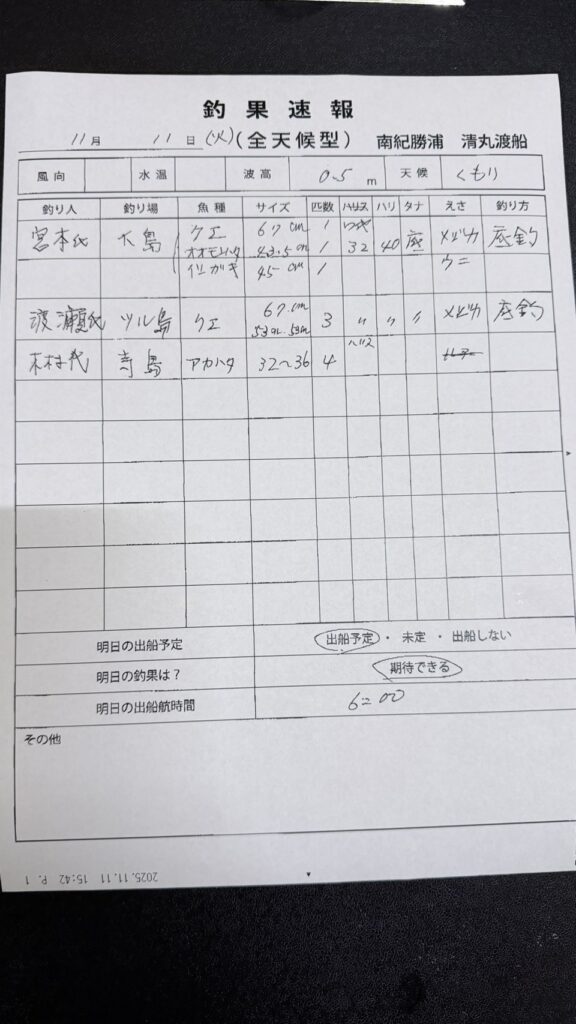 釣果速報
11月 11日(火)(全天候型) 南紀勝浦 清丸渡船
風向 水温 波高 0.5 m 天候 くもり
釣り人 釣り場 魚種 サイズ 匹数 ハリス ハリ タナ えさ 釣り方
宮本氏 大島 クエ 67cm 1 ワイヤ
オオモンハタ 43.5cm 1 32 40 底 メジカ 底釣
イシガキ 45cm 1 ウニ
渡瀬氏 ツル島 クエ 67cm 3 〃 〃 〃 メジカ 底釣
53cm. 53cm
木村氏 寺島 アカハタ 32〜36 4 ハリス
明日の出船予定 出船予定 ・ 未定 ・ 出船しない
明日の釣果は? 期待できる
明日の出船航時間 6=00
その他
2025.11.11 15:42 P. 1